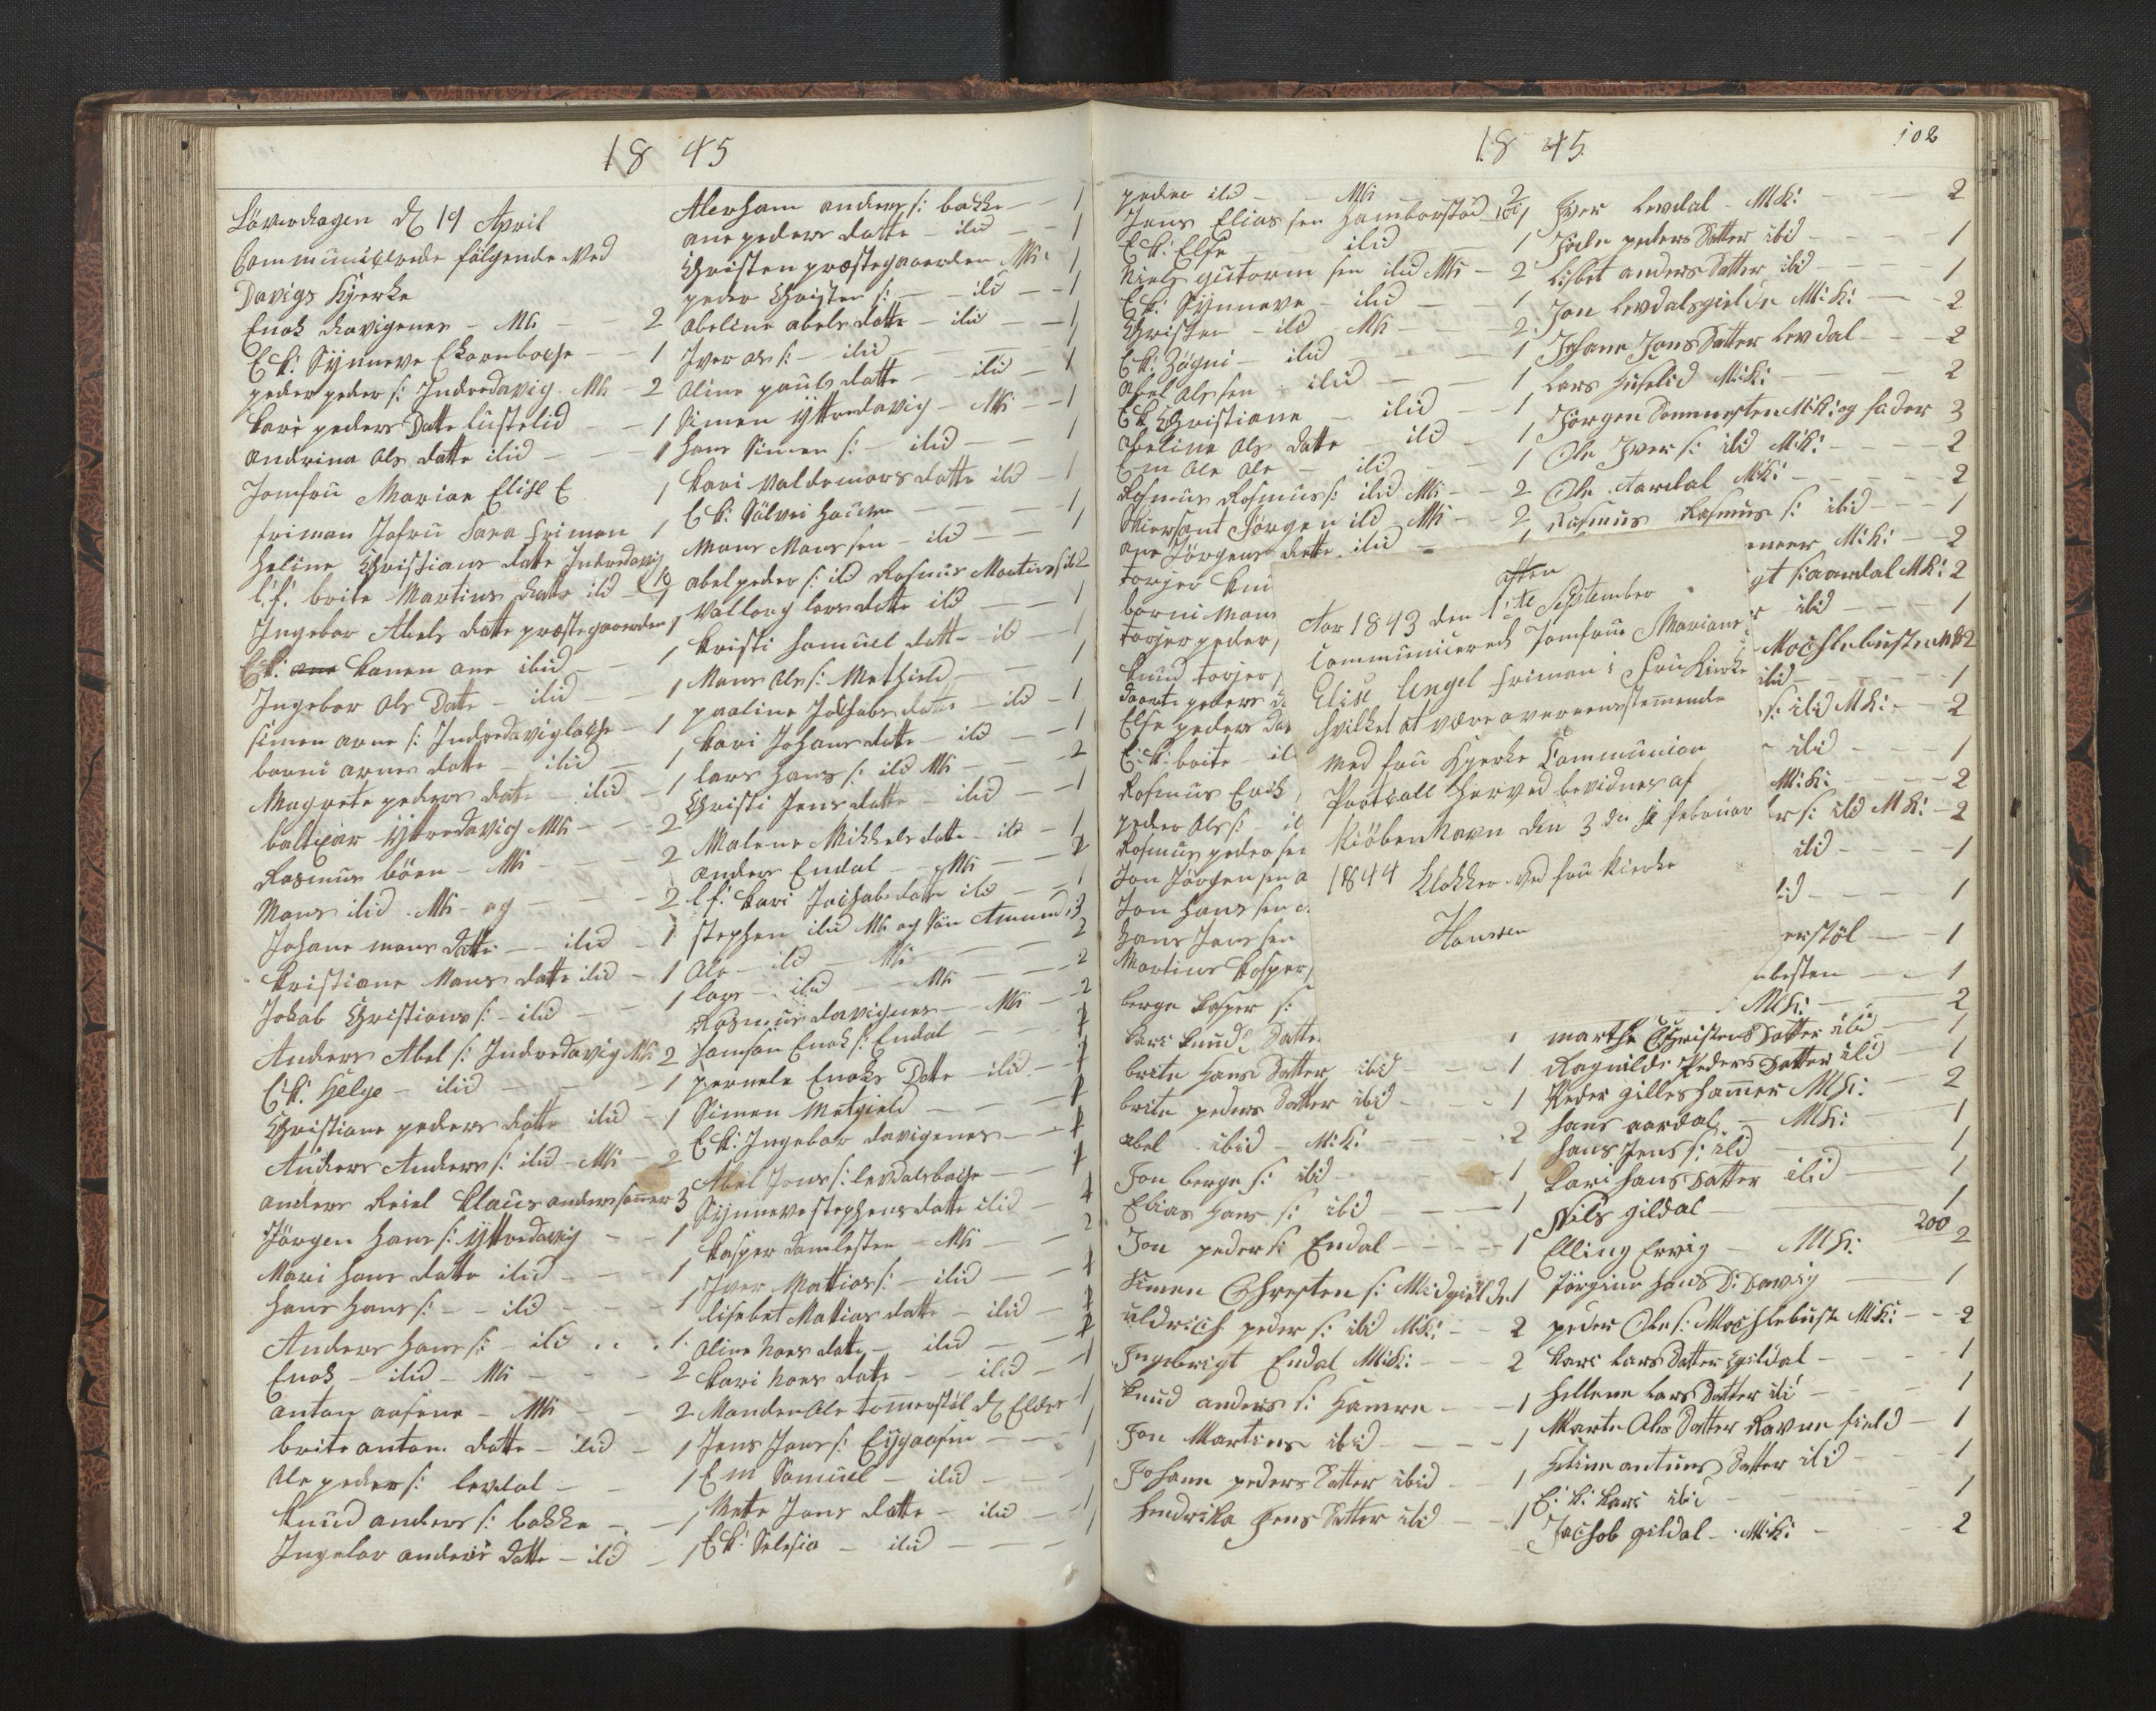 18 45
Löverdagen d 19 April
Communicerede fölgende ved
Davigs Kjerke
Enok davigenes - Mk - 2
E k: Synneve Ekornbache - 1
peder peder s: Indredavig Mk 2
kari peders Datte lustelid - 1
andrina Ols datte ibid - 1
Jomfru Marian Elise E 1
friman Jofru Sara friman 1
Heline Christians datte Indredavig
l: f: brite Martins datte ibid - 1
Ingebor Abels datte præstegaarden 1
E k: konen ane ibid - 1
Ingebor Ols Date - ibid - 1
simon arne s: Indredavigbache - 1
borni arnes datte - ibid - 1
Magrete peders date - ibid - 1
baltzar Yttredavig Mk - 2
Rasmus böen - Mk - 2
Mons ibid Mk og - 2
Johane mons datte - ibid - 1
kristiane Mons datte ibid - 1
Jokab Christians s: - ibid - 1
Anders Abel s: Indredavig Mk 2
E: k: Helge - ibid - 1
Christiane peders datte ibid - 1
Anders Anders s: ibid - Mk - 2
anders Reiel Klaus anderssammer 3
Jörgen Hans s: Yttredavig - 1
Mari hans datte ibid - 1
hans hans s: - ibid - 1
Anders hans s: - ibid . . 1
Enok - ibid - Mk - 2
anton aasene - Mk - 2
brite anton datte - ibid - 1
Ole peders s: levdal - 1
knud anders s: bakke - 1
Ingebor anders datte - ibid - 1
Aberham anders s: bakke - 1
ane peders datte - ibid - 1
Christen præstegaarden Mk 1
peder Christen s: - ibid - 1
abeline abels datte - ibid - 1
Iver Ols s: - ibid - 1
oline pauls datte - ibid - 1
Simen Yttredavig - Mk - 1
hans Simen s: - ibid - 1
kari Valdemors datte ibid - 1
E k: Sölvei Hausen - 1
Mons Mons sen - ibid - 1
abel peder s: ibid Rasmus Martins s ibid 2
Valborg lars datte ibid - 1
kristi Samuel datte - ibid - 1
Mons Ols s: Methield - 1
paaline Jakhobs datte - ibid - 1
kari Johans datte - ibid - 1
lars hans s: ibid Mk - 2
Christi Jens datte - ibid - 1
Malene Mikkels datte - ibid - 1
anders Endal - Mk - 2
l: f: kari Jachobs datte ibid - 1
stephen ibid Mk og Sön Amund 3
Ole - ibid - Mk - 2
lars - ibid - Mk - 2
Rasmus davigenes - Mk - 2
Samson Enok s: Endal - 1
pernele Enoks Datte ibid - 1
Simen Metgield - 1
E k: Ingebor davigenes - 1
Abel Jons s: levdalsbache - 1
Synneve stephens datte ibid - 1
kasper Domlesten - Mk - 2
Iver Mattias s: - ibid - 1
lisebet Matias datte - ibid - 1
oline Hans datte - ibid - 1
kari hans date - ibid - 1
Manden Ole tomerstöl d Elder 1
Jens Jens s: Eygaasen - 1
E m Samuel - ibid - 1
Mete Jons datte - ibid - 1
E k: Selesia - ibid - 1
18 45
102
peder ibid - Mk 2
Jens Elias sen Hamborstad 1
E k: Else ibid 1
Niels gutorm sen ibid Mk - 2
E k: Synneve - ibid - 1
Christen - ibid Mk - 2
E k: Zögni ibid - 1
Abel Ols sen - ibid - 1
E k Christiane - ibid - 1
abeline Ols datte - ibid - 1
E m Ole Ole - ibid - 1
Rasmus Rasmus s: ibid Mk - 2
Jörgen ibid Mk - 2
ane Jörgens datte ibid - 1
torjer knu
borni mons
torjer peder
knud torjer
daarte peders d
Else peders da
E: k: brite - ib
Rasmus Erik
peder Ols s: ib
Rasmus peder sen
Jon Jörgen sen
Jon hans sen
hans Jens sen
Martinus kasper
berge kasper s:
kari knuds Datte 1
brite Hans Datter ibid - 1
brite peders Datter ibid - 1
Abel ibid - M: k: - 2
Jon berge s: ibid - 1
Elias Hans s: ibid - 1
Jon peder s: Endal - 1
Simen Chresten s: Midgielde 1
uldrich peder s: ibid M: k: - 2
Ingebrigt Endal M: k: - 2
knud anders s: Hamre - 1
Jon Martines ibid - 1
Johane peders Datter ibid - 1
Hendrika Jens Datter ibid - 1
aften
Aar 1843 den 1te September
Communicerede Jomfrue Mariane
Elise Engel friman i Frue Kirke
hvilket at være overensstemmende
med frue kjerke Communion
Protocoll herved bevidnes af
Kiöbenhavn den 3 die februar
1844 klokker ved frue kirke
Hanssen
Iver Levdal - M: k: - 2
Jörlu peders Datter ibid - 1
Lisbet anders Datter ibid - 1
Jon Levdalsgielde M: k: - 2
Johane Jons Datter Levdal - 2
Lars Huselid M: k: - 2
Jörgen Dommesten M: k: og fader 3
Ole Iver s: ibid M: k: - 2
Ole Aardal M: k: - 2
Rasmus Rasmus s: ibid - 1
meer M: k: - 2
gt s: aardal M k: 2
ibid - 1
Mochlebust M: k: 2
ibid - 1
s: ibid M: k: - 2
ibid - 1
M: k: - 2
r s: ibid M k: - 2
ibid - 1
id - 1
erstöl - 1
lesten - 1
M: k: - 2
marthe Christens Datter ibid - 1
Ragnilde Peders Datter ibid - 1
Peder gilleshammer M: k: - 2
hans aardal - M: k: - 1
hans Jens s: ibid - 1
kari hans Datter ibid - 1
Nils gildal - 1
Elling Ervig - M: k: 200 2
Jörgine hans D: Davig - 1
peder Ole s: Mochlebust M: k: - 2
kari Lars Datter gildal - 1
Hellene Lars Datter ibi - 1
Marte Ols Datter Ravnefield - 1
Heline antuns Datter ibid - 1
E: k: kari ibid - 1
Jachob gildal - M: k: - 2